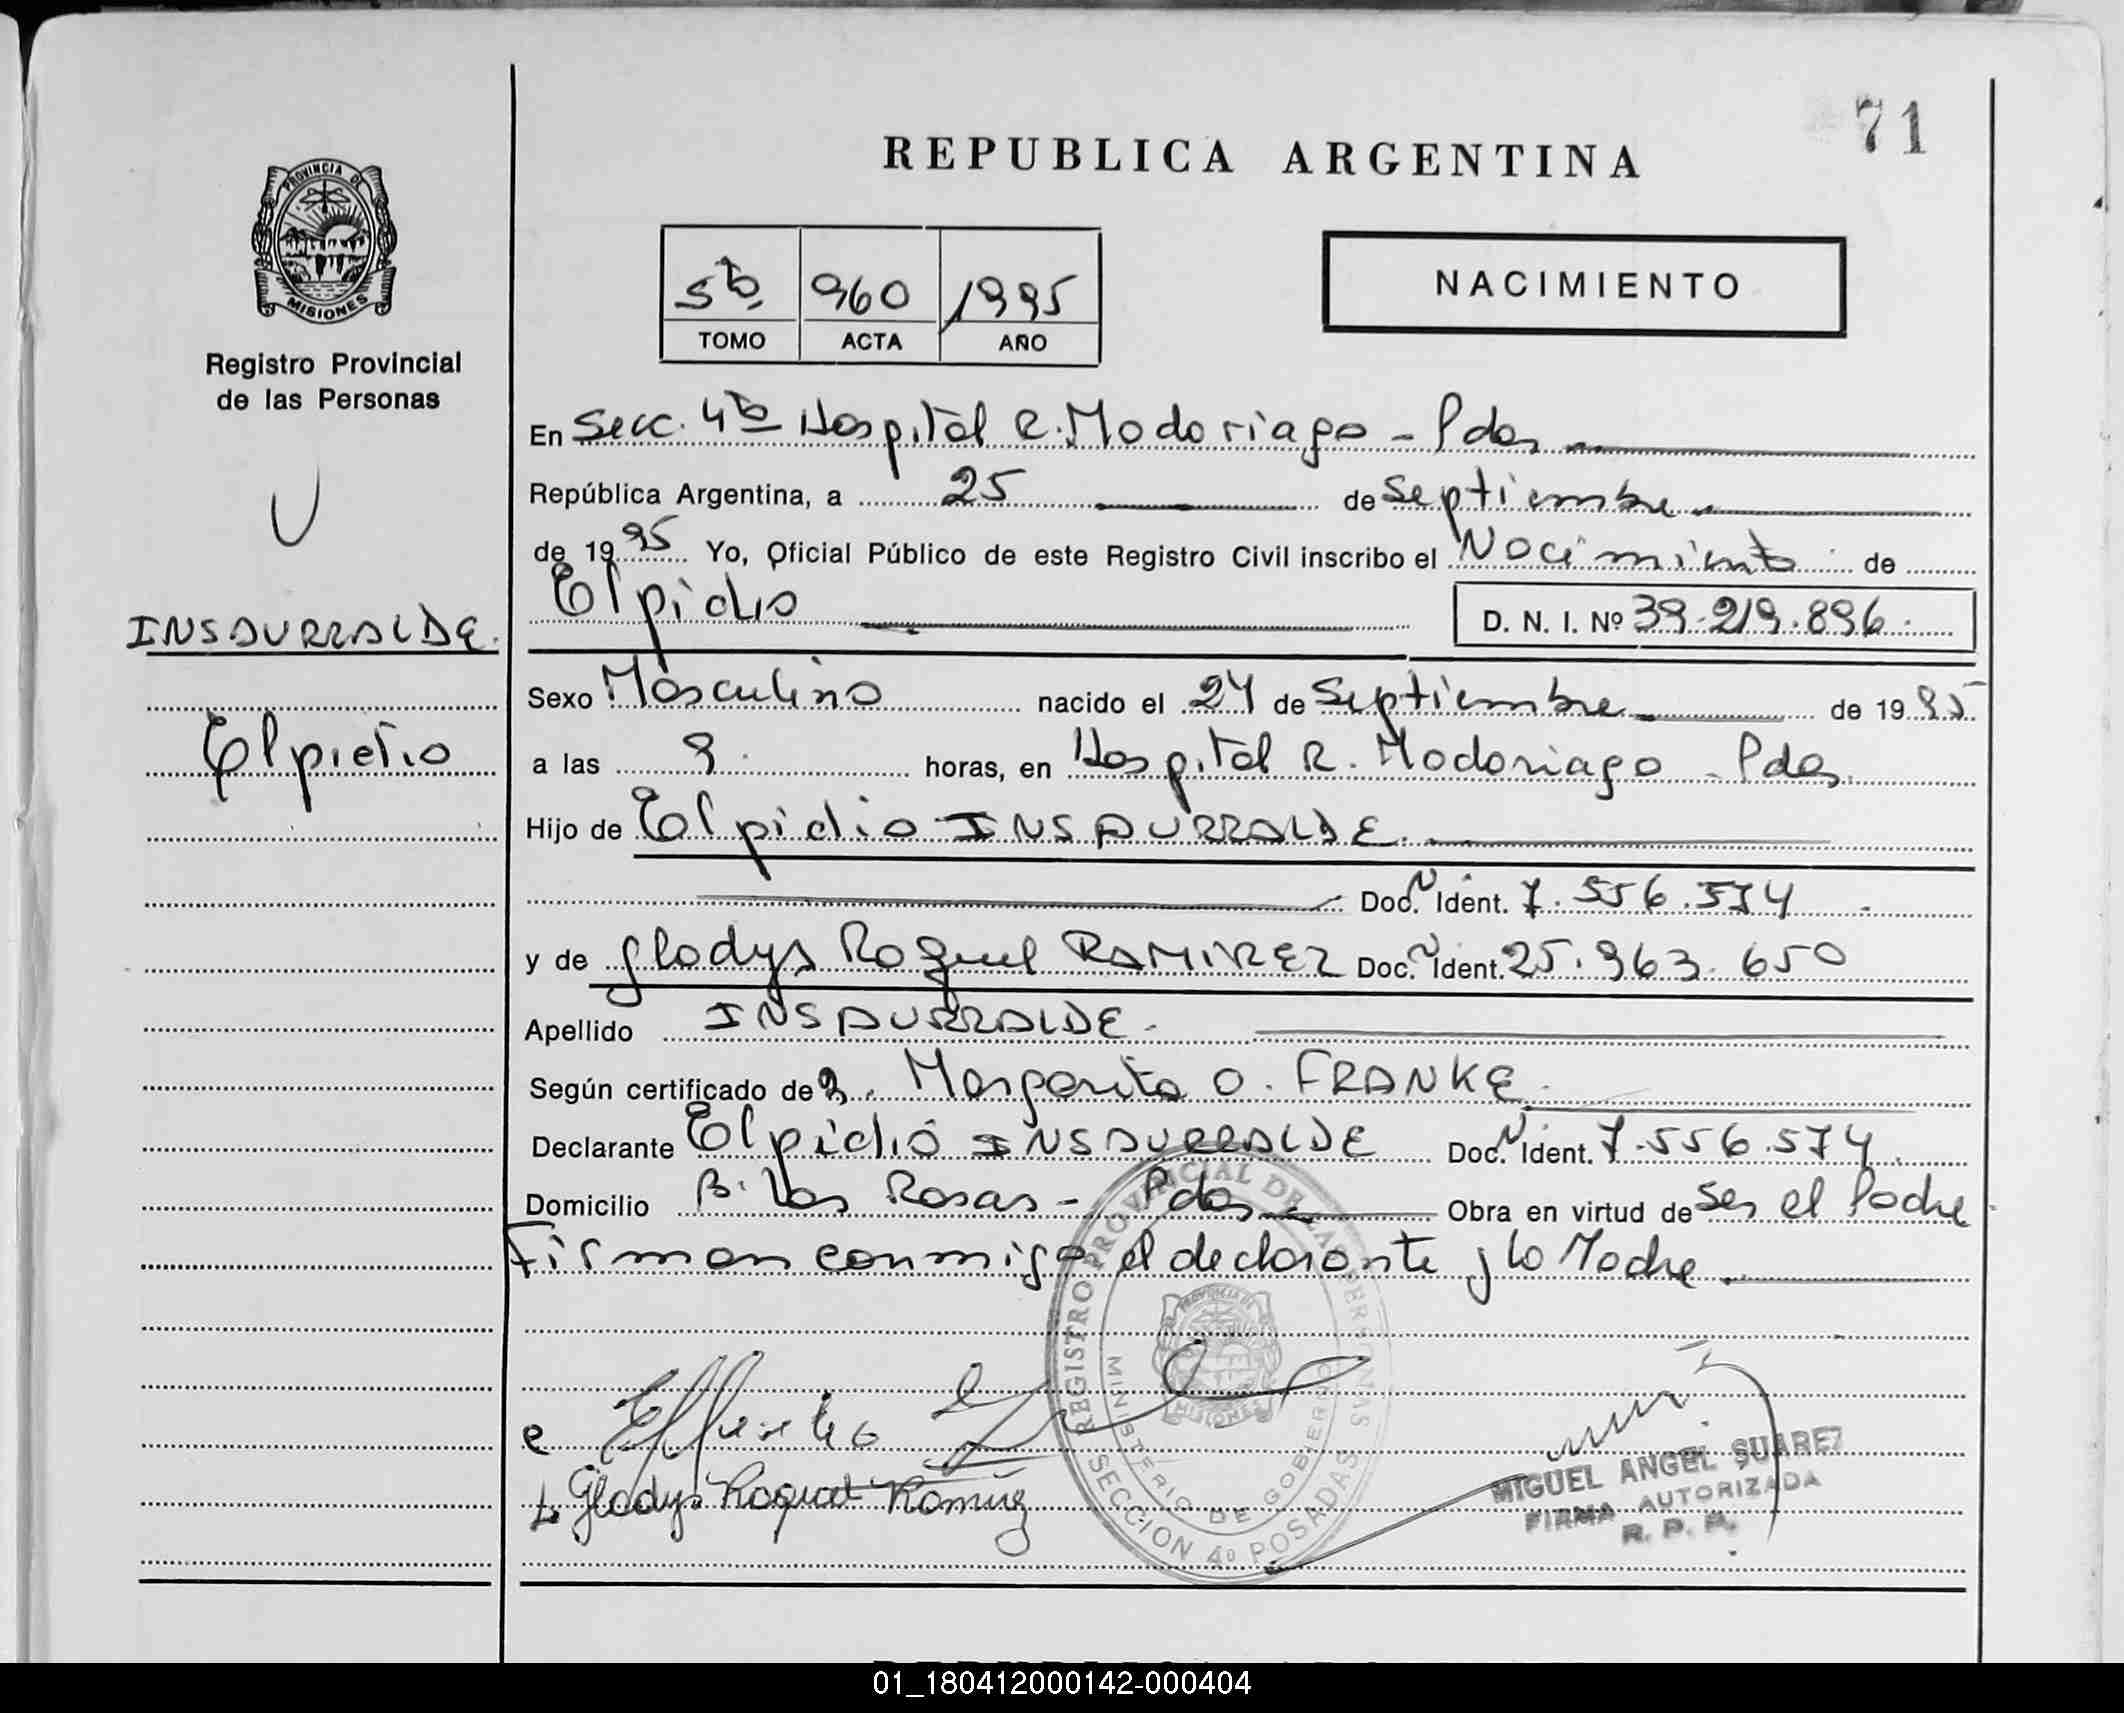 71
REPUBLICA ARGENTINA
PROVINCIA DE
MISIONES
Registro Provincial
de las Personas
5to 960 1995
TOMO ACTA AÑO
NACIMIENTO
En Secc. 4ta Hospital R. Madariaga - Pdas
República Argentina, a 25 de Septiembre
de 1995 Yo, Oficial Público de este Registro Civil inscribo el Nacimiento de
Elpidio D. N. I. Nº 39.219.896
INSAURRALDE.
Elpidio
Sexo Masculino nacido el 24 de Septiembre de 1995
a las 9 horas, en Hospital R. Madariaga - Pdas.
Hijo de Elpidio INSAURRALDE.
Doc. N Ident. 7.556.574
y de Gladys Raquel RAMIREZ Doc. N Ident. 25.963.650
Apellido INSAURRALDE.
Según certificado de Margarita O. FRANKE
Declarante Elpidio INSAURRALDE Doc. N Ident. 7.556.574
Domicilio B. Las Rosas - Pdas Obra en virtud de Ser el Padre
Firman conmigo el declarante y la Madre
REGISTRO PROVINCIAL DE LAS PERSONAS
MINISTERIO DE GOBIERNO
PROVINCIA DE
MISIONES
SECCION 4º POSADAS
Gladys Raquel Ramirez
MIGUEL ANGEL SUAREZ
FIRMA AUTORIZADA
R. P. P.
01_180412000142-000404